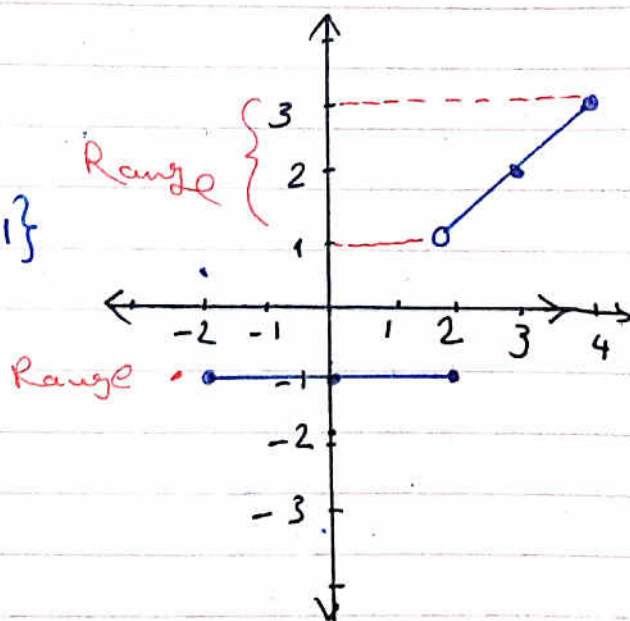 3
Range {
2
1}
1
-2 -1 1 2 3 4
Range
-1
-2
-3